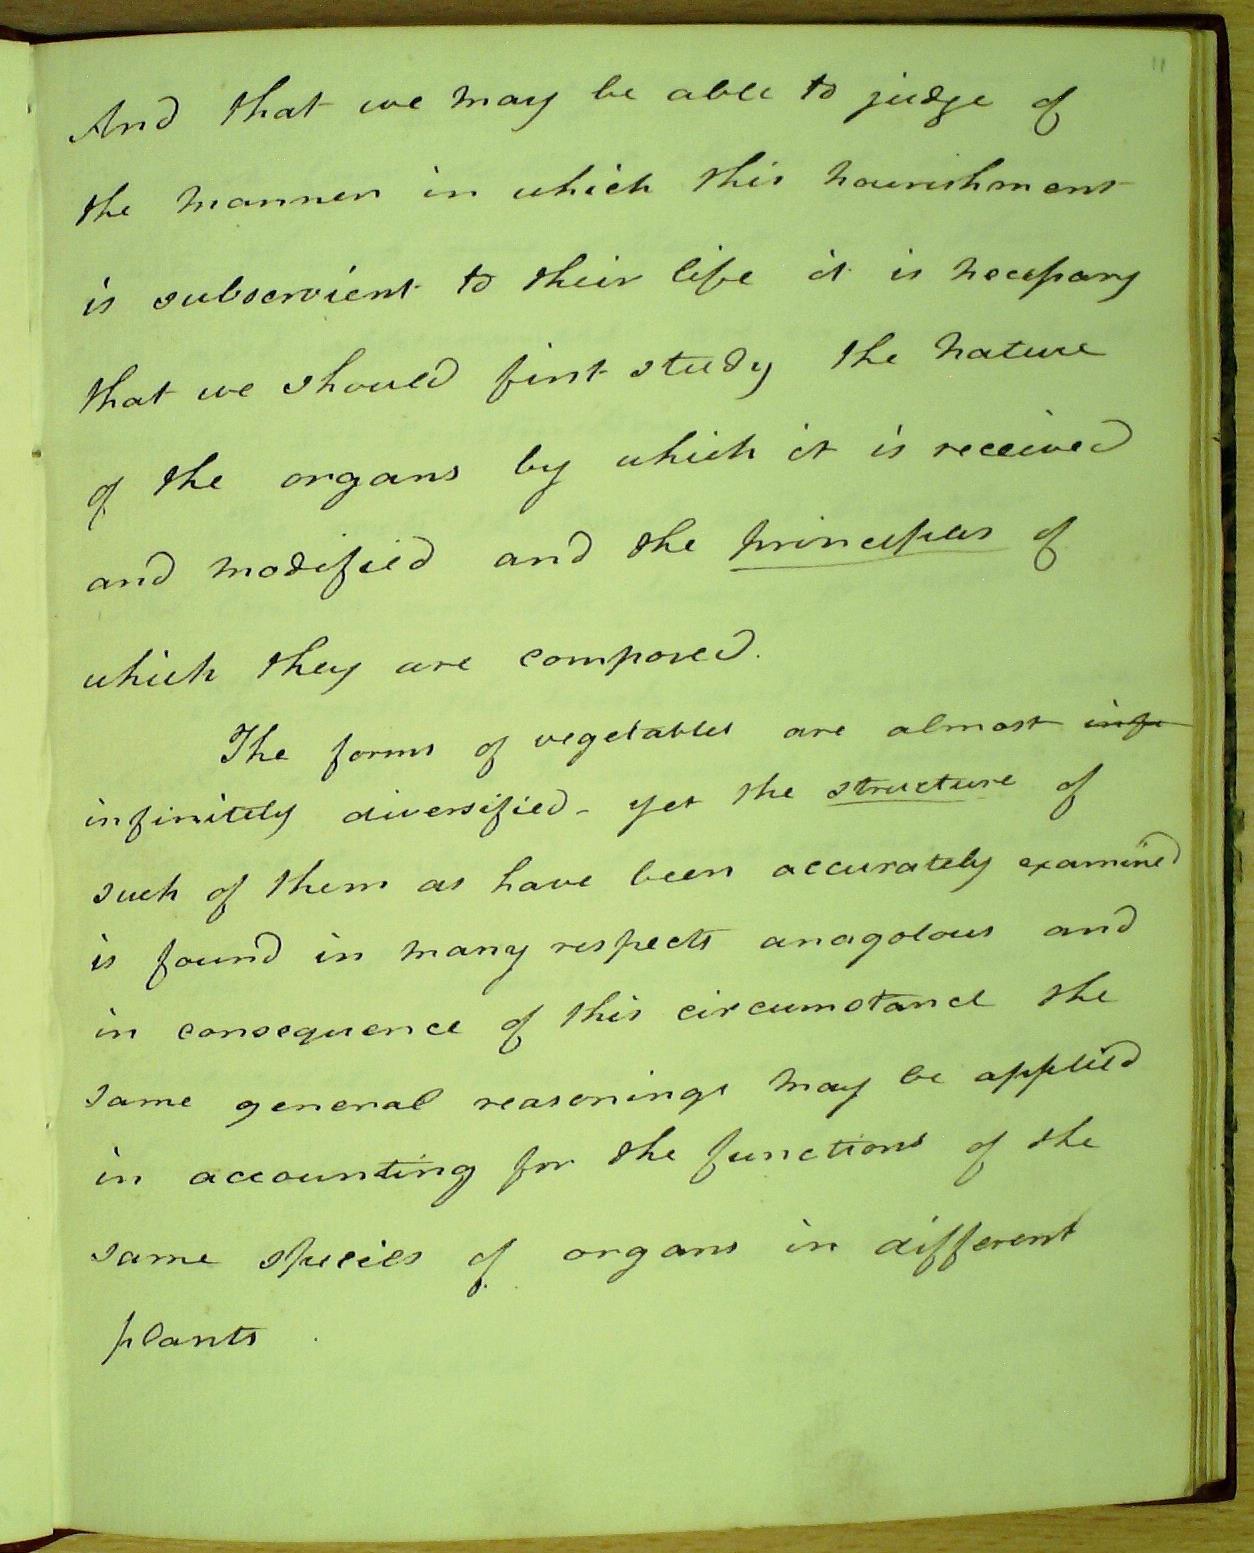 11
And that we may be able to judge of
the manner in which this nourishment
is subservient to their life it is necessary
that we should first study the nature
of the organs by which it is received
and modified and the principles of
which they are composed.
The forms of vegetables are almost infi
infinitely diversified - yet the structure of
such of them as have been accurately examined
is found in many respects anagolous and
in consequence of this circumstance the
same general reasonings may be applied
in accounting for the functions of the
same species of organs in different
plants .